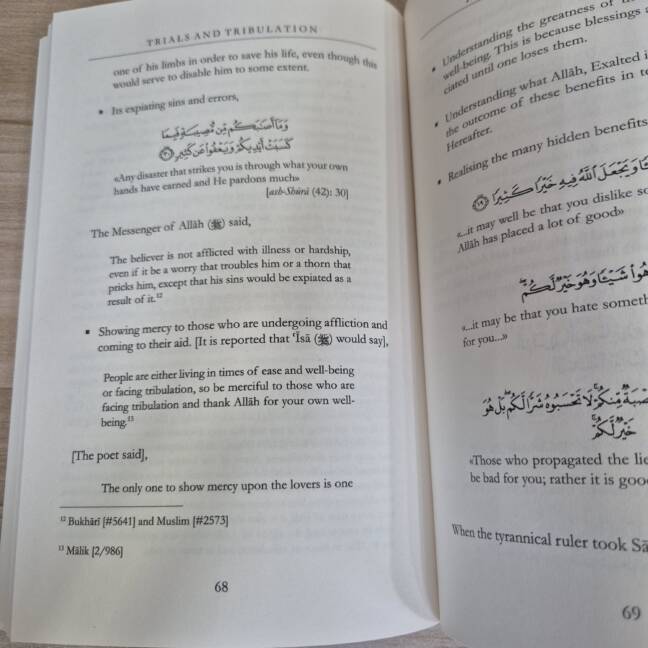 TRIALS AND TRIBULATION
one of his limbs in order to save his life, even though this
would serve to disable him to some extent.
• Its expiating sins and errors,
وَمَآ أَصَٰبَكُم مِّن مُّصِيبَةٍ فَبِمَا
كَسَبَتْ أَيْدِيكُمْ وَيَعْفُوا۟ عَن كَثِيرٍ ۝٣٠
«Any disaster that strikes you is through what your own
hands have earned and He pardons much»
[ash-Shūrā (42): 30]
The Messenger of Allāh (ﷺ) said,
The believer is not afflicted with illness or hardship,
even if it be a worry that troubles him or a thorn that
pricks him, except that his sins would be expiated as a
result of it.¹²
▪ Showing mercy to those who are undergoing affliction and
coming to their aid. [It is reported that ‘Īsā () would say],
People are either living in times of ease and well-being
or facing tribulation, so be merciful to those who are
facing tribulation and thank Allāh for your own well-
being.¹³
[The poet said],
The only one to show mercy upon the lovers is one
¹² Bukhārī [#5641] and Muslim [#2573]
¹³ Mālik [2/986]
68
• Understanding the greatness of
well-being. This is because blessings
ciated until one loses them.
• Understanding what Allāh, Exalted
the outcome of these benefits in
Hereafter.
• Realising the many hidden benefits
وَيَجْعَلَ ٱللَّهُ فِيهِ خَيْرًا كَثِيرًا ۝١٩
«...it may well be that you dislike
Allāh has placed a lot of good»
شَيْـًٔا وَهُوَ خَيْرٌ لَّكُمْ
«...it may be that you hate
for you...»
مِّنكُمْ لَا تَحْسَبُوهُ شَرًّا لَّكُم بَلْ هُوَ
خَيْرٌ لَّكُمْ
«Those who propagated the lie
be bad for you; rather it is
When the tyrannical ruler took
69